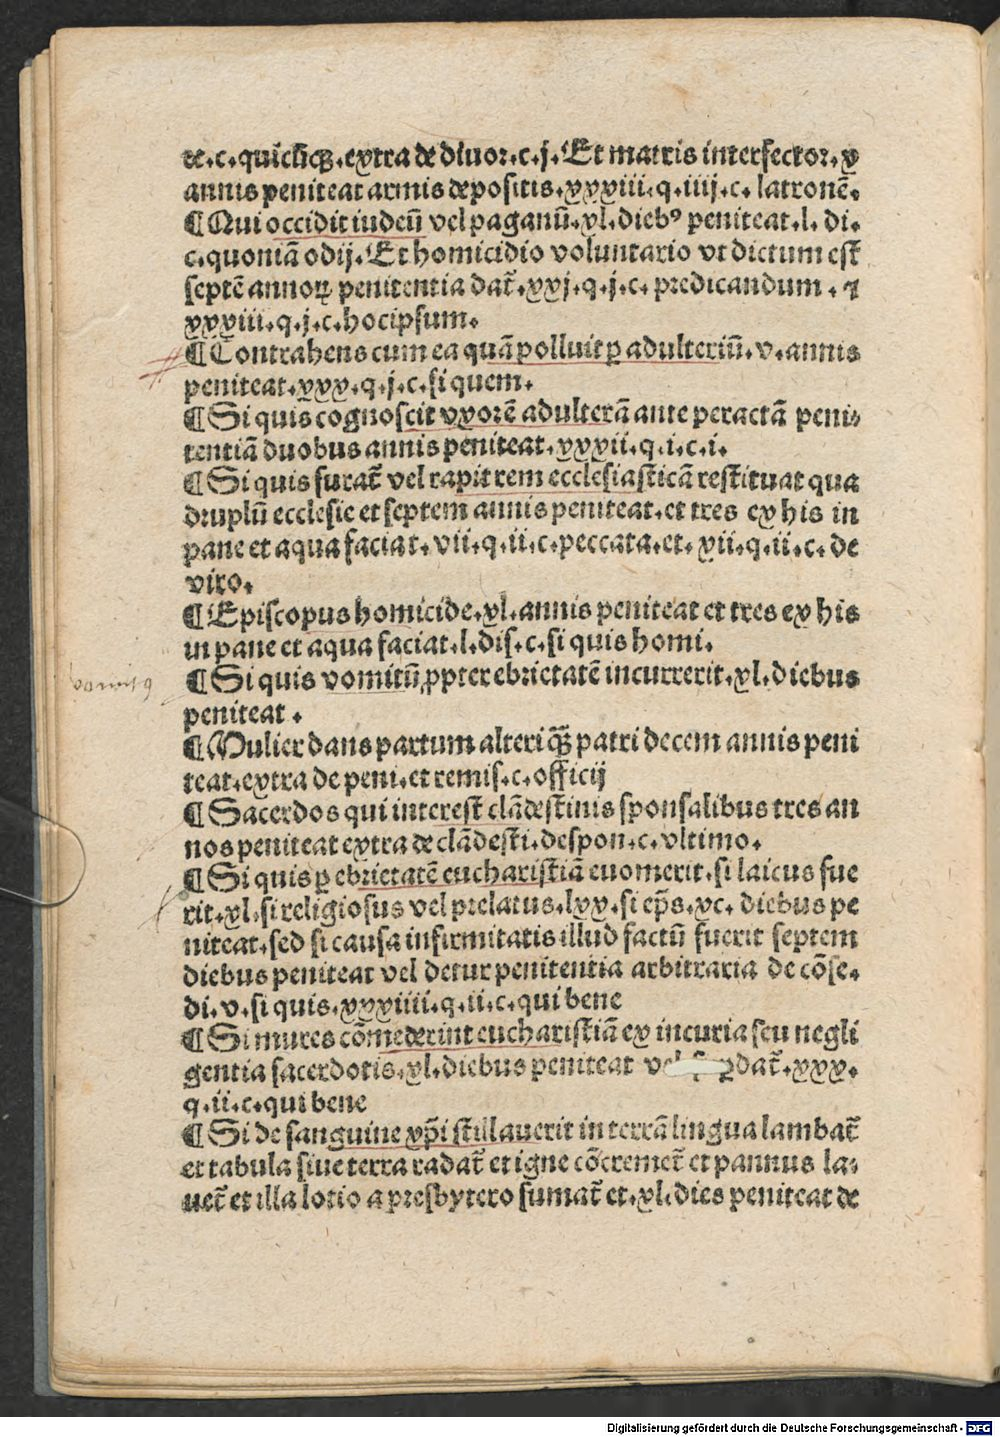 de.c.quicūq̃.extra de diuor.c.j.Et matris interfector.x
annis peniteat armis depositis.xxxiii.q.iiij.c. latronē.
¶Qui occidit iudeū vel paganū.xl.diebꝰ peniteat.l. di.
c.quoniā odij.Et homicidio voluntario vt dictum est
septē annoꝝ penitentia dat̃.xxj.q.j.c. predicandum . ⁊
xxxiii.q.j.c.hocipsum.
¶Contrahens cum ea quā polluit ꝑ adulteriū.v.annis
peniteat.xxx.q.j.c.si quem.
¶Si quis cognoscit vxorē adulterā ante peractā peni-
tentiā duobus annis peniteat.xxxii.q.i.c.i.
¶Si quis furat̃ vel rapit rem ecclesiasticā restituat qua
druplū ecclesie et septem annis peniteat.et tres ex his in
pane et aqua faciat.vii.q.ii.c.peccata.et.xii.q.ii.c. de
viro.
¶Episcopus homicide.xl.annis peniteat et tres ex his
in pane et aqua faciat.l.dis.c.si quis homi.
vomitꝰ
¶Si quis vomitū ꝓpter ebrietatē incurrerit.xl.diebus
peniteat .
¶Mulier dans partum alteri q̃ꝫ patri decem annis peni
teat.extra de peni.et remis.c.officij
¶Sacerdos qui interest clādestinis sponsalibus tres an
nos peniteat extra de clādesti.despon.c.vltimo.
¶Si quis ꝑ ebrietatē eucharistiā euomerit.si laicus fue
rit.xl.si religiosus vel prelatus.lxx.si ep̃s.xc. diebus pe
niteat.sed si causa infirmitatis illud factū fuerit septem
diebus peniteat vel detur penitentia arbitraria de cōse.
di.v.si quis.xxxiiii.q.ii.c.qui bene
¶Si mures cōmederint eucharistiā ex incuria seu negli
gentia sacerdotis.xl.diebus peniteat dat̃.xxx.
q.ii.c.qui bene
¶Si de sanguine xp̃i stillauerit in terrā lingua lambat̃
et tabula siue terra radat̃ et igne cōcremet̃ et pannus la-
uet̃ et illa lotio a presbytero sumat̃ et.xl.dies peniteat de
Digitalisierung gefördert durch die Deutsche Forschungsgemeinschaft - DFG